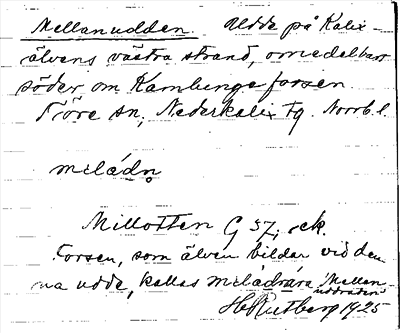 Mellanudden. Udde på Kalix-
älvens västra strand, omedelbart
söder om Kamlungeforsen.
Töre sn, Nederkalix tg. Norrb. l.
milådn
Millotten G 57, ek.
Forsen, som älven bildar vid den-
na udde, kallas milådråra 'Mellan-
uddraden'.
H Rutberg 1925